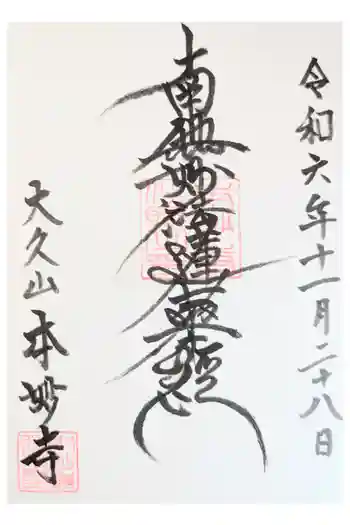 令和六年十一月二十八日
南無妙法蓮華経
大久山本妙寺